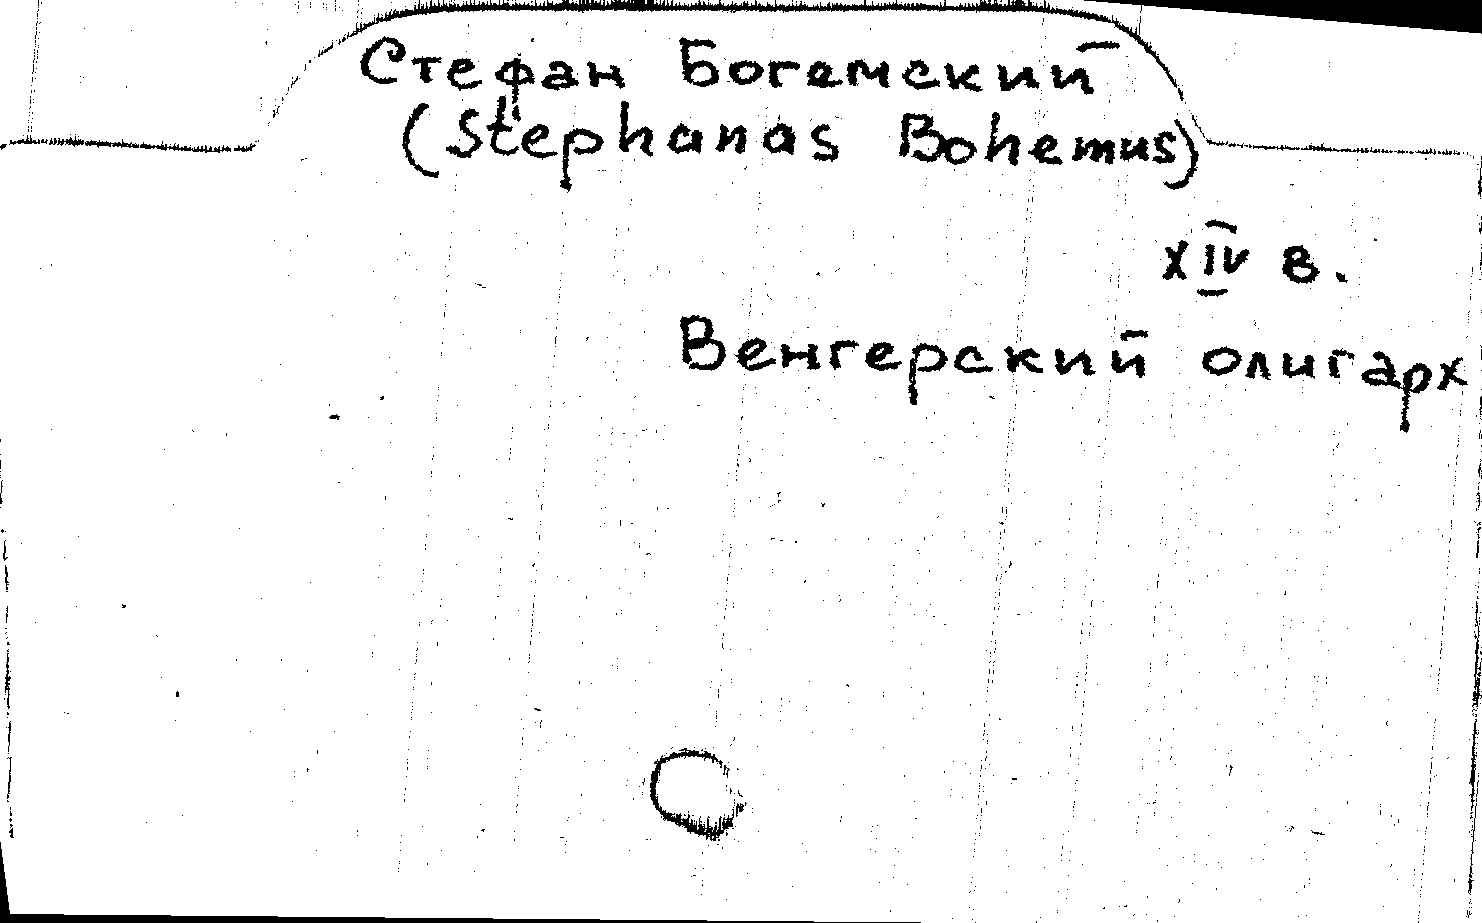 Стефан Богемский
(Stephanas Bohemus)
XIV в.
Венгерский олигарх